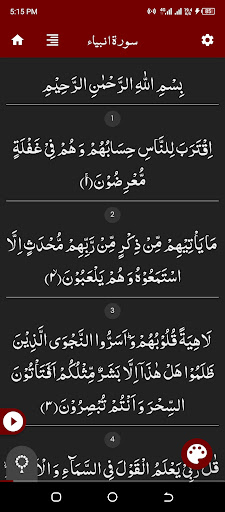 5:15 PM
سورۃ انبیاء
بِسْمِ اللهِ الرَّحْمٰنِ الرَّحِيْمِ
1
اِقْتَرَبَ لِلنَّاسِ حِسَابُهُمْ وَ هُمْ فِيْ غَفْلَةٍ
مُّعْرِضُوْنَ(۱)
2
مَا يَاْتِيْهِمْ مِّنْ ذِكْرٍ مِّنْ رَّبِّهِمْ مُّحْدَثٍ اِلَّا
اسْتَمَعُوْهُ وَ هُمْ يَلْعَبُوْنَ(۲)
3
لَاهِيَةً قُلُوْبُهُمْ وَ اَسَرُّوا النَّجْوَى الَّذِيْنَ
ظَلَمُوْا هَلْ هٰذَاۤ اِلَّا بَشَرٌ مِّثْلُكُمْ اَفَتَاْتُوْنَ
السِّحْرَ وَ اَنْتُمْ تُبْصِرُوْنَ(۳)
4
قٰلَ رَبِّيْ يَعْلَمُ الْقَوْلَ فِي السَّمَآءِ وَ